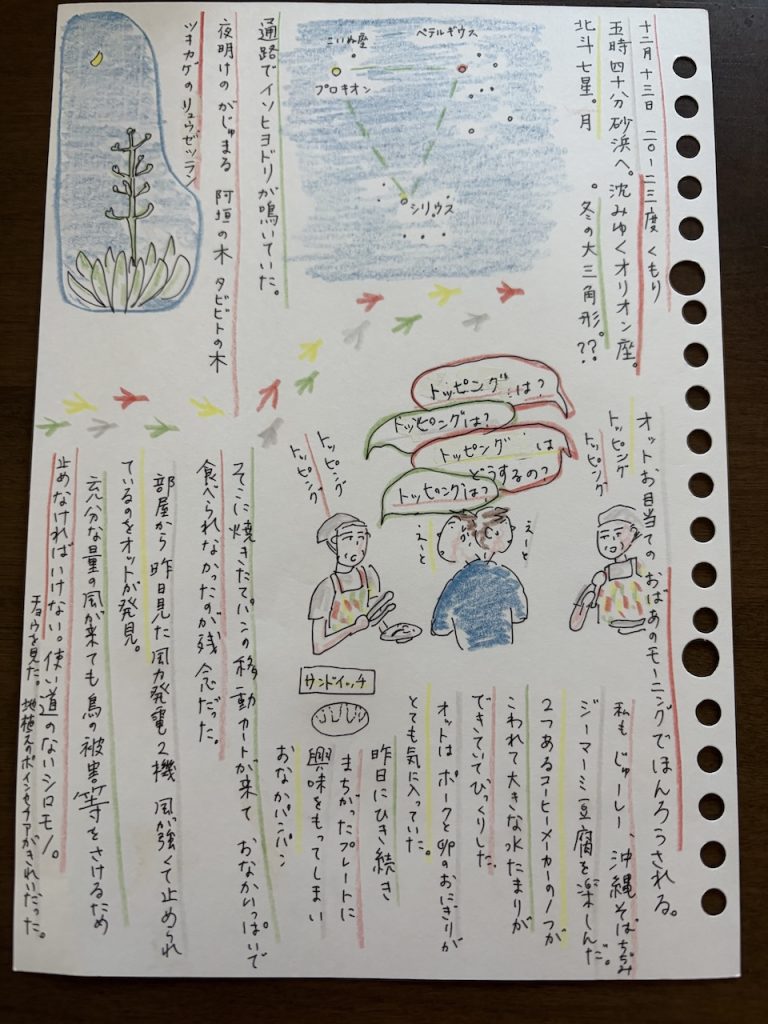 十二月十三日 二〇・二三度 くもり
五時四十分砂浜へ。沈みゆくオリオン座。
北斗七星。月 。冬の大三角形。??
ベテルギウス
こいぬ座
プロキオン
シリウス
通路でイソヒヨドリが鳴いていた。
夜明けの がじゅまる 阿垣の木 タビビトの木
ツキカゲのリュウゼツラン
オットお目当ての おばあのモーニングでほんろうされる。
トッピング
トッピング
トッピングは?
トッピングは?
トッピングは
どうするの?
トッピングは?
えーと
えーと
トッピング
トッピング
サンドイッチ
私も じゅーしー、沖縄そばちぢみ
ジーマーミ豆腐を楽しんだ。
2つあるコーヒーメーカーの1つが
こわれて大きな水たまりが
できていてびっくりした。
オットは ポークと卵のおにぎりが
とても気に入っていた。
昨日にひき続き
まちがったプレートに
興味をもってしまい
おなかパンパン
そこに焼きたてパンの移動カートが来て おなかいっぱいで
食べられなかったのが残念だった。
部屋から 昨日見た風力発電2機 風が強くて止められ
ているのをオットが発見。
充分な量の風が来ても鳥の被害等をさけるため
止めなければいけない。使い道のないシロモノ。
チョウを見た。地植えのポインセチアがきれいだった。